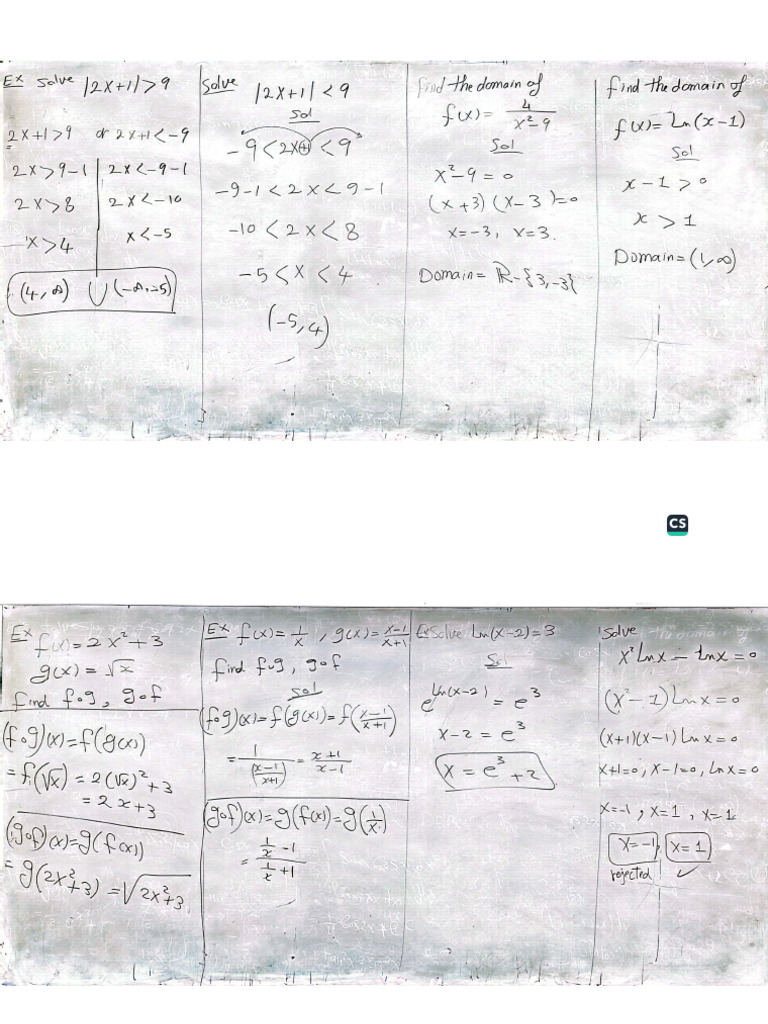 Ex solve |2x+1|>9
2x+1>9 or 2x+1<-9
2x>9-1 | 2x<-9-1
2x>8 | 2x<-10
x>4 | x<-5
(4,∞) ∪ (-∞,-5)
Solve |2x+1|<9
Sol
-9<2x+1<9
-9-1<2x<9-1
-10<2x<8
-5<x<4
(-5,4)
find the domain of
f(x)= 4/(x²-9)
Sol
x²-9=0
(x+3)(x-3)=0
x=-3, x=3.
Domain= ℝ-{3,-3}
find the domain of
f(x)=Ln(x-1)
Sol
x-1>0
x>1
Domain=(1,∞)
CS
Ex f(x)=2x²+3
g(x)=√x
find fog, gof
(fog)(x)=f(g(x))
=f(√x)=2(√x)²+3
=2x+3
(gof)(x)=g(f(x))
=g(2x²+3)=√(2x²+3)
Ex f(x)=1/x, g(x)=(x-1)/(x+1)
find fog, gof
sol
(fog)(x)=f(g(x)=f((x-1)/(x+1))
=1/((x-1)/(x+1))=(x+1)/(x-1)
(gof)(x)=g(f(x)=g(1/x)
=(1/x -1)/(1/x +1)
Ex Solve Ln(x-2)=3
Sol
e^Ln(x-2)=e³
x-2=e³
x=e³+2
Solve
x²Lnx-Lnx=0
(x²-1)Lnx=0
(x+1)(x-1)Lnx=0
x+1=0, x-1=0, Lnx=0
x=-1, x=1, x=1
x=-1, x=1
rejected ✓